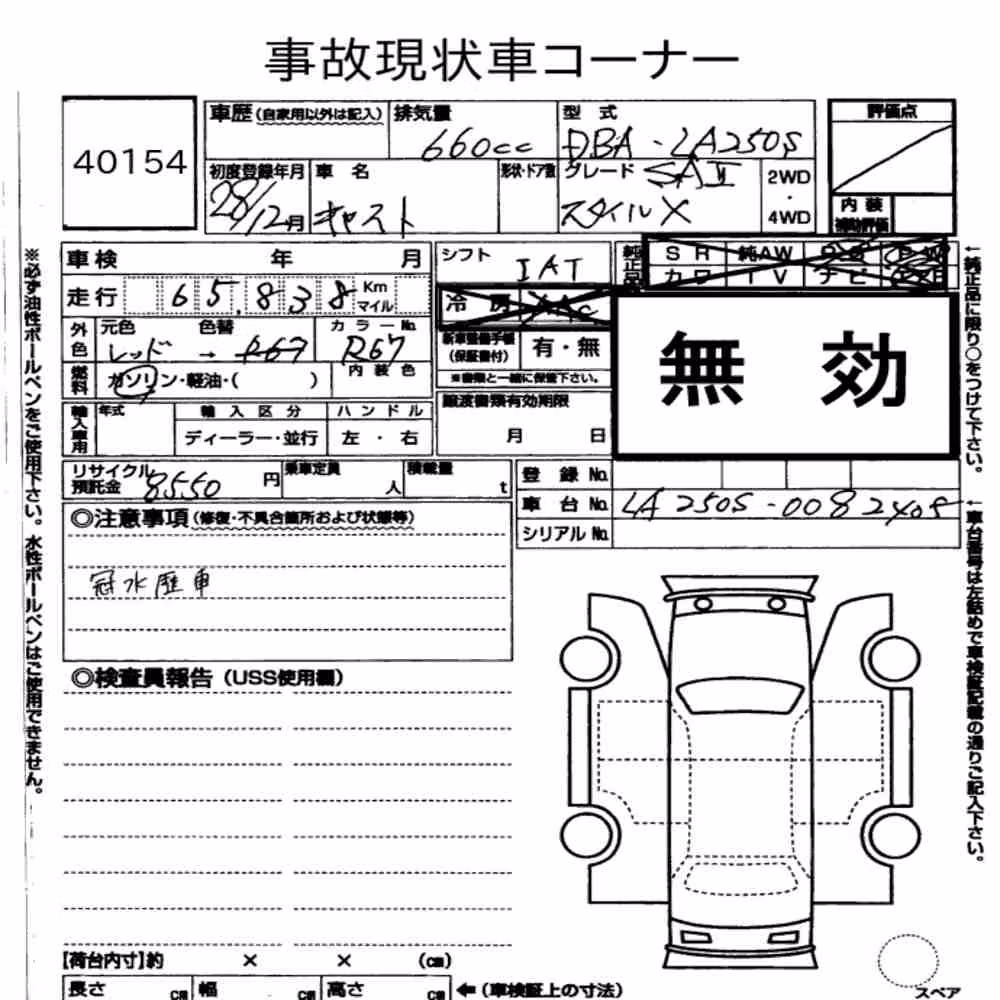 事故現状車コーナー
40154
車歴(自家用以外は記入) 排気量 型式 評価点
660cc DBA-LA250S
初度登録年月 車名 形状・ドア数 グレード SAⅡ 2WD
・
28/12月 キャスト スタイルX 4WD
内装
補助評価
車検 年 月 シフト 純正品 SR 純AW
IAT カワ TV ナビ
走行 65,838 Km
マイル 冷房
外色 元色 色替 カラーNo. 新車整備手帳
(保証書付) 有・無
レッド → R67 R67
内装色 ※書類と一緒に保管下さい。
燃料 ガソリン・軽油・( )
譲渡書類有効期限
月 日
無効
輸入車用 年式 輸入区分 ハンドル
ディーラー・並行 左・右
リサイクル
預託金 8550円 乗車定員 人 積載量 t
登録No.
車台No. LA250S-0082405
シリアルNo.
◎注意事項(修復・不具合箇所および状態等)
冠水歴車
◎検査員報告(USS使用欄)
【荷台内寸】約 × × (cm)
長さ cm 幅 cm 高さ cm ←(車検証上の寸法)
スペア
※必ず油性ボールペンをご使用下さい。水性ボールペンはご使用できません。
←純正品に限り○をつけて下さい。
←車台番号は左詰めで車検証記載の通りご記入下さい。